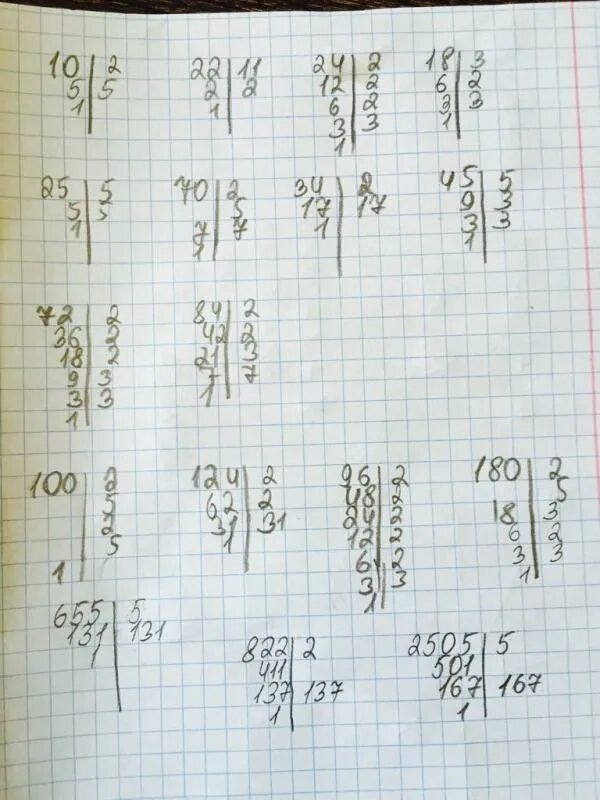 10 | 2
5 | 5
1 |
22 | 11
2 | 2
1 |
24 | 2
12 | 2
6 | 2
3 | 3
1 |
18 | 3
6 | 2
3 | 3
1 |
25 | 5
5 | 5
1 |
70 | 2
| 5
7 | 7
1 |
34 | 2
17 | 17
1 |
45 | 5
9 | 3
3 | 3
1 |
72 | 2
36 | 2
18 | 2
9 | 3
3 | 3
1 |
84 | 2
42 | 2
21 | 3
7 | 7
1 |
100 | 2
| 5
| 2
| 5
1 |
124 | 2
62 | 2
31 | 31
1 |
96 | 2
48 | 2
24 | 2
12 | 2
6 | 2
3 | 3
1 |
180 | 2
| 5
18 | 3
6 | 2
3 | 3
1 |
655 | 5
131 | 131
1 |
822 | 2
411 |
137 | 137
1 |
2505 | 5
501 |
167 | 167
1 |